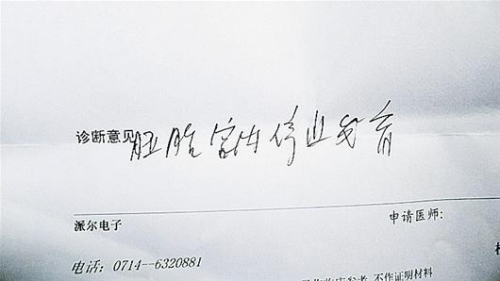 诊断意见 胚胎宫内停止发育
派尔电子 申请医师:
电话: 0714--6320881
不作证明材料